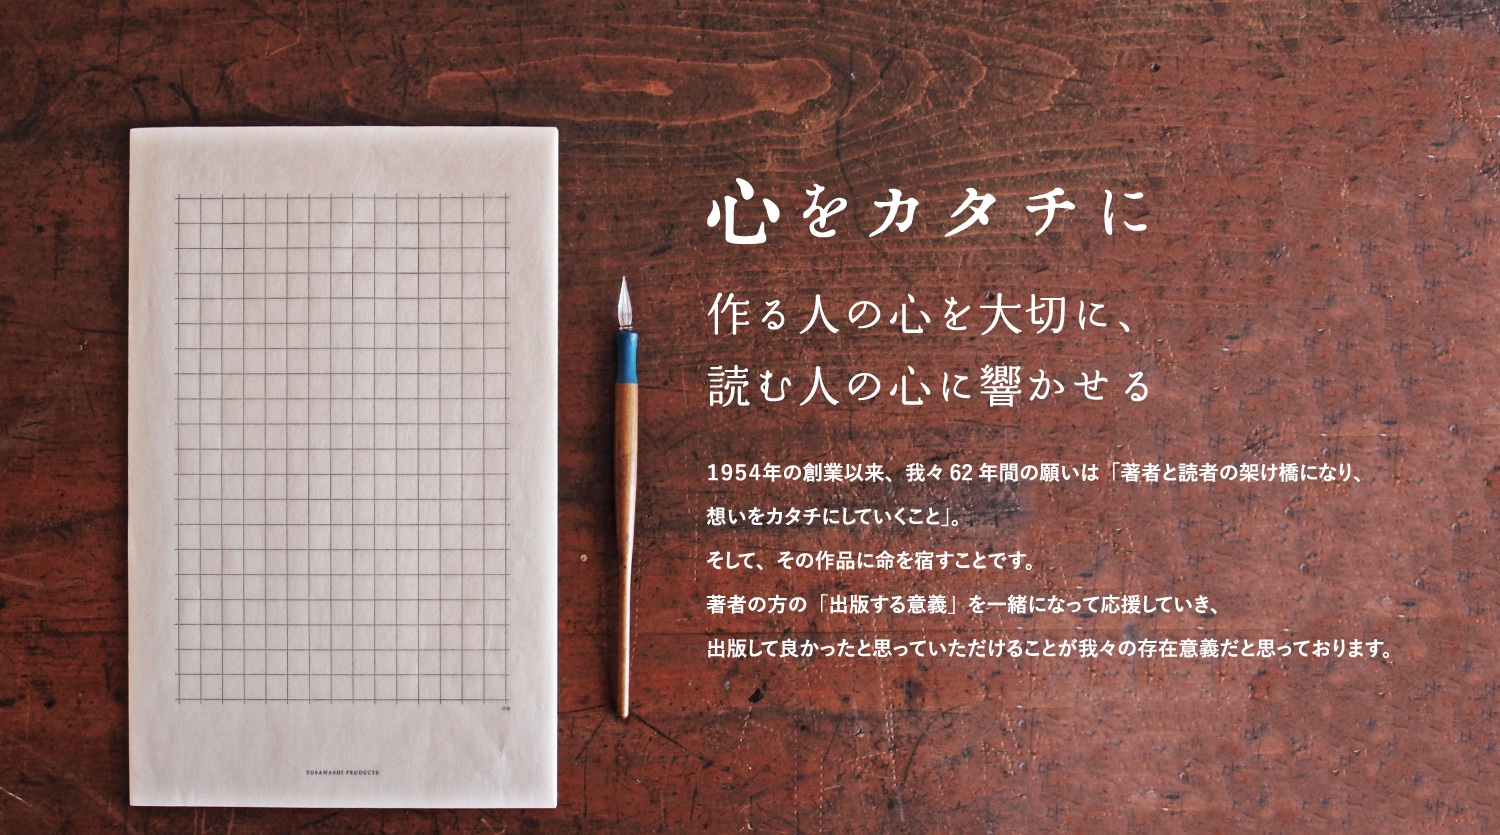 心をカタチに
作る人の心を大切に、
読む人の心に響かせる
1954年の創業以来、我々62年間の願いは「著者と読者の架け橋になり、
想いをカタチにしていくこと」。
そして、その作品に命を宿すことです。
著者の方の「出版する意義」を一緒になって応援していき、
出版して良かったと思っていただけることが我々の存在意義だと思っております。
TOSAWASHI PRODUCTS